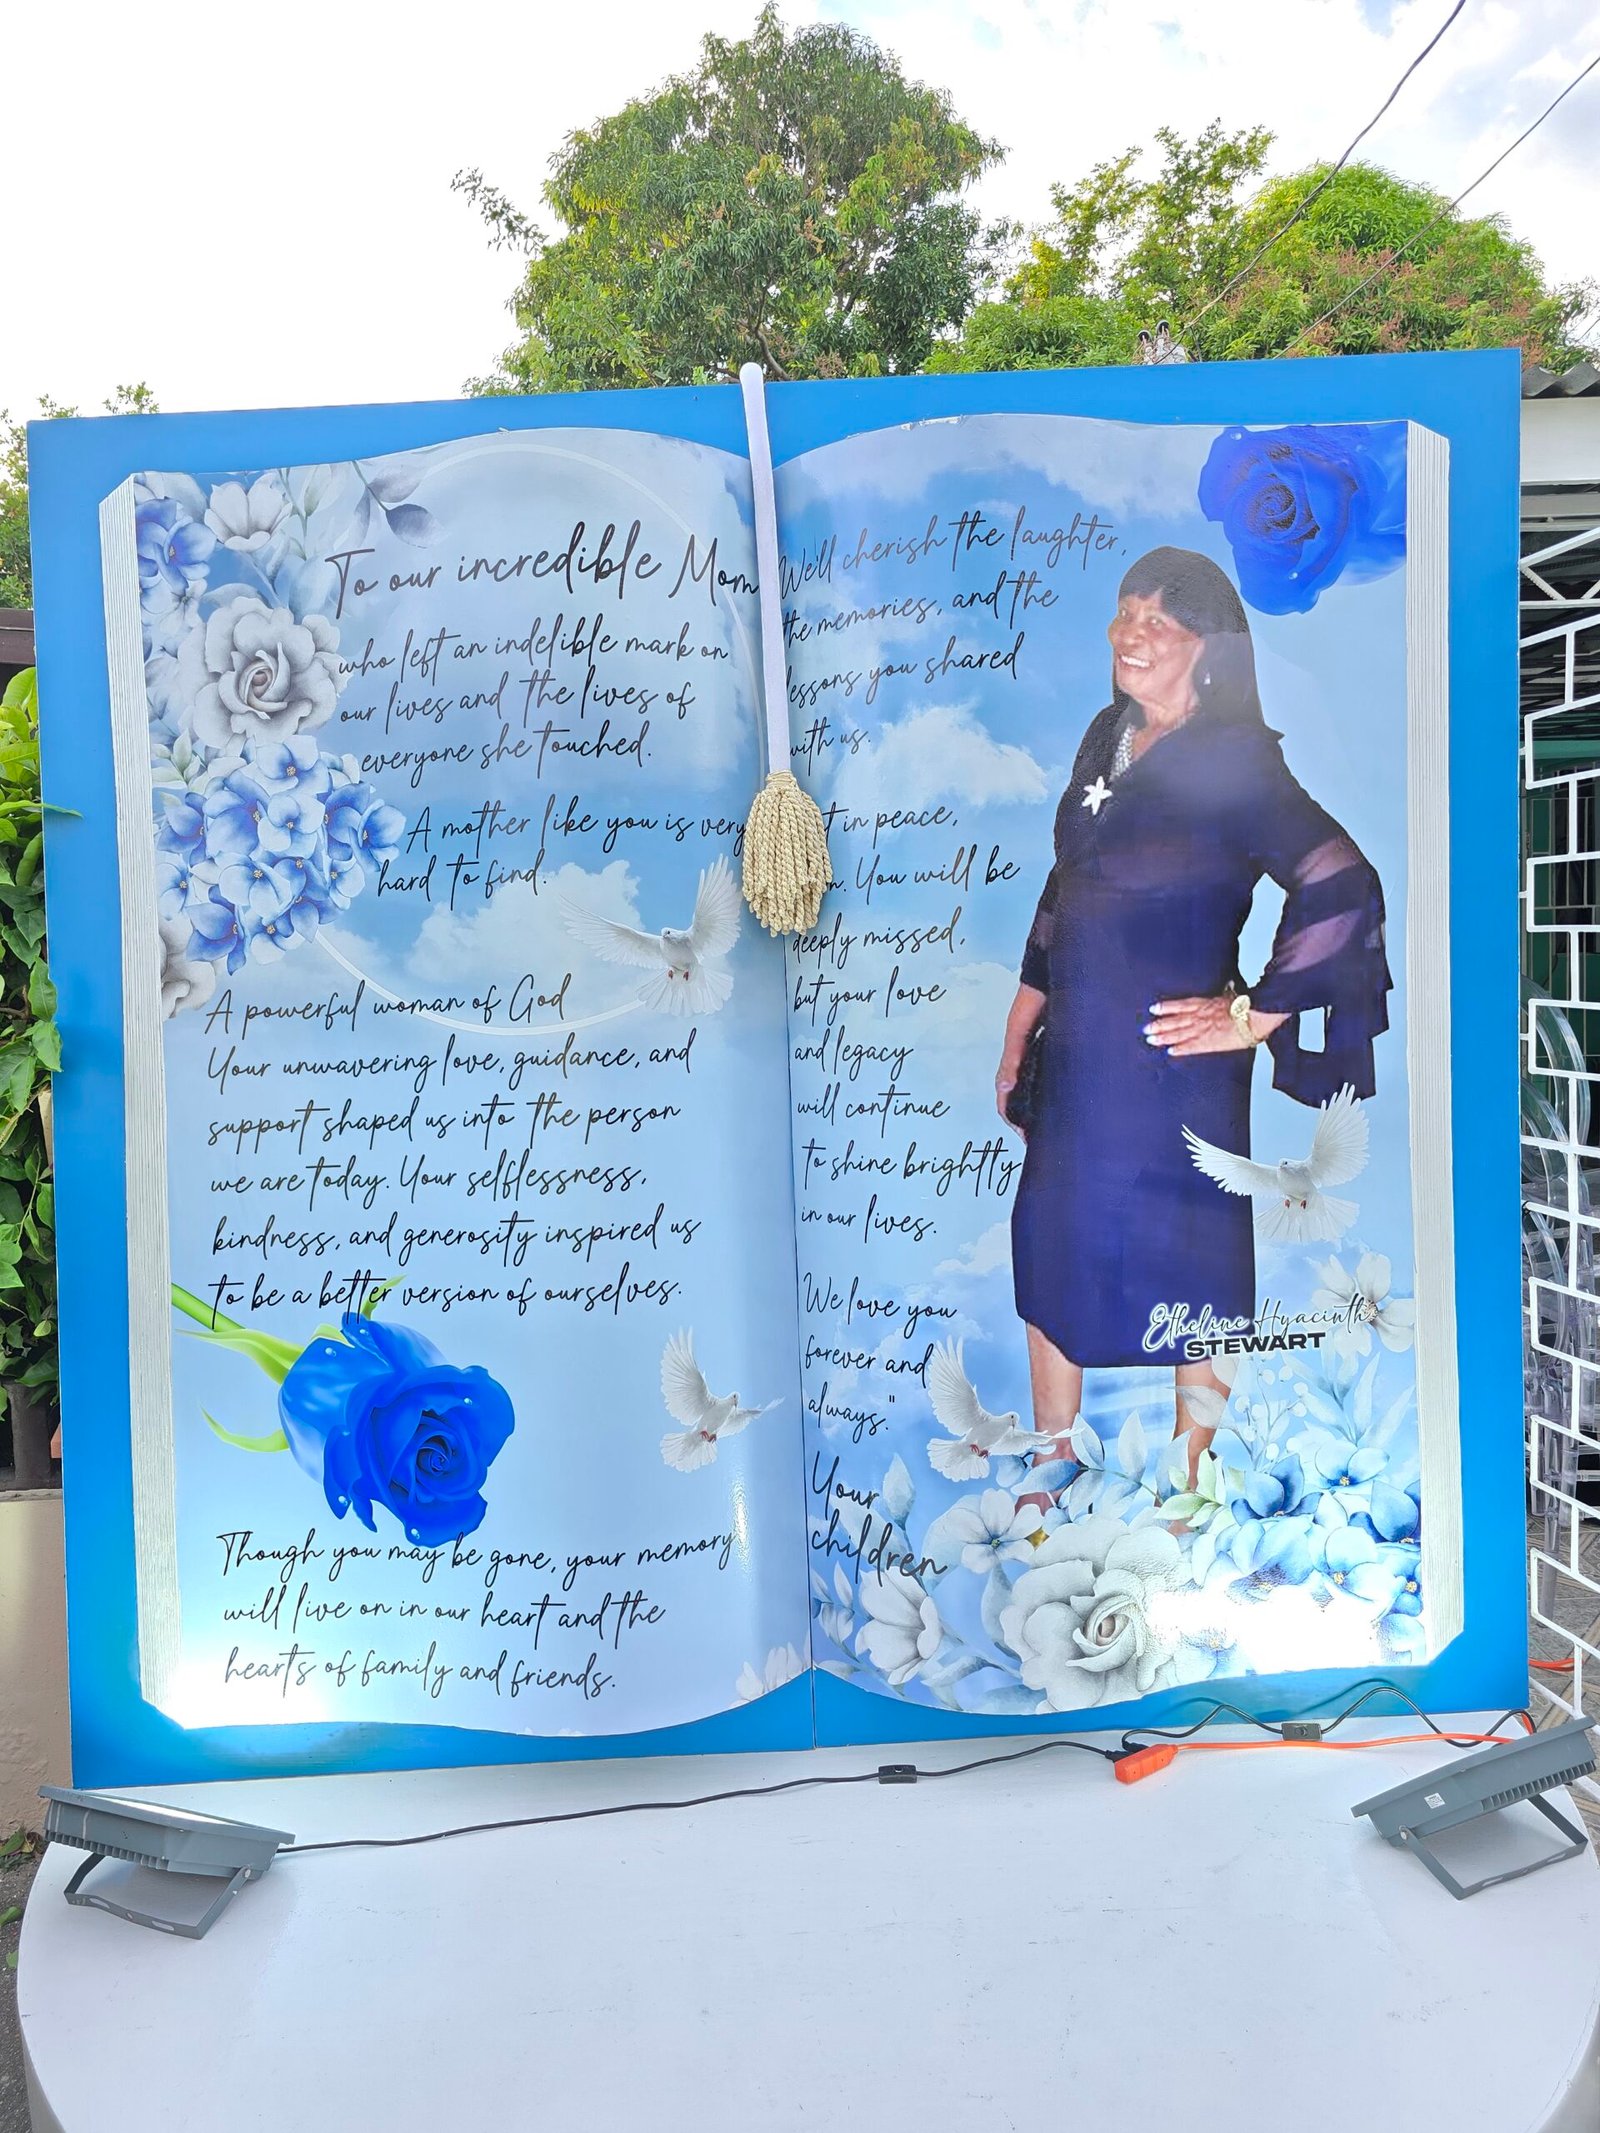 To our incredible Mom
who left an indelible mark on
our lives and the lives of
everyone she touched.
A mother like you is very
hard to find.
A powerful woman of God
Your unwavering love, guidance, and
support shaped us into the person
we are today. Your selflessness,
kindness, and generosity inspired us
to be a better version of ourselves.
Though you may be gone, your memory
will live on in our heart and the
hearts of family and friends.
We'll cherish the laughter,
the memories, and the
lessons you shared
with us.
in peace,
You will be
deeply missed,
but your love
and legacy
will continue
to shine brightly
in our lives.
We love you
forever and
always."
Your
children
Etheline Hyacinth
STEWART